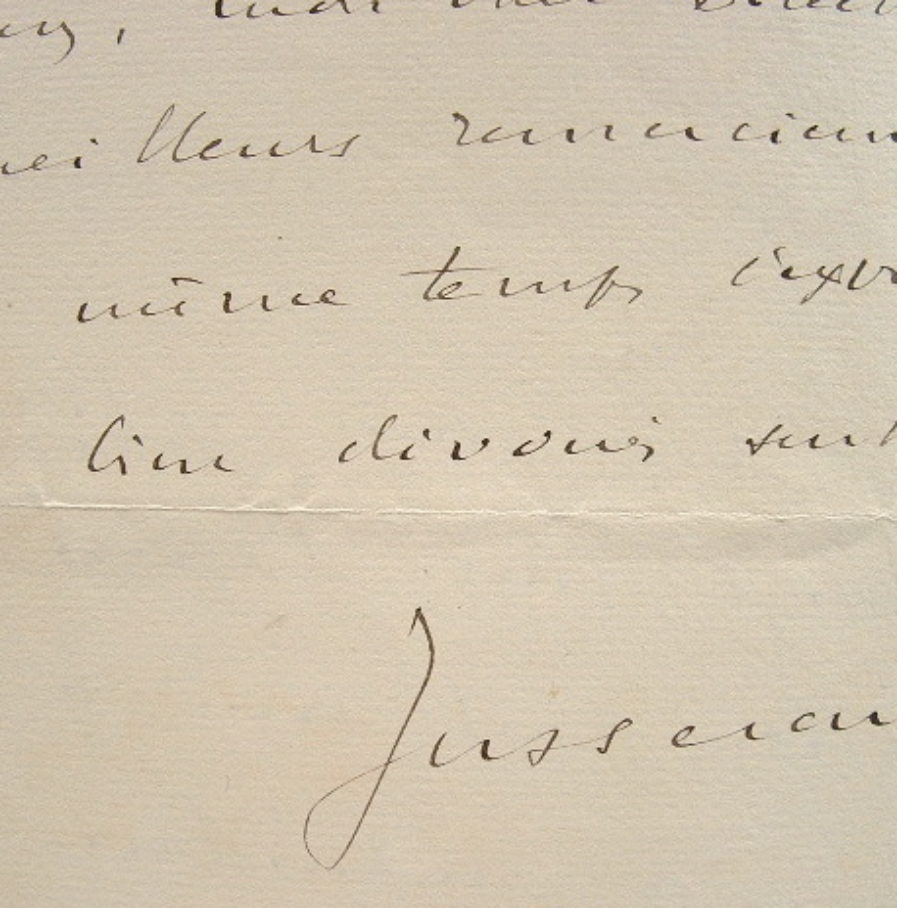 meilleurs remerciem
même temps l'expr
bien dévoués sent
Jusseran